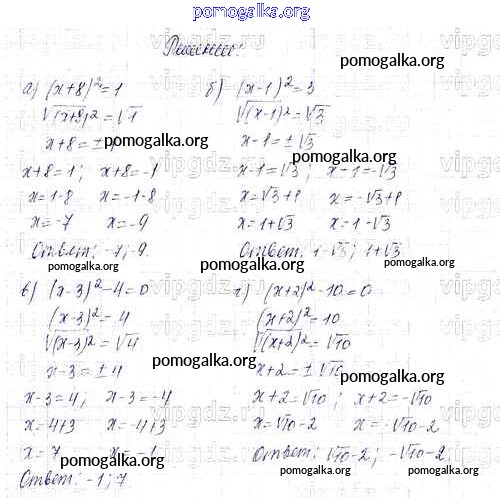 pomogalka.org
Решение:
а) (x+8)²=1
√(x+8)²=√1
x+8=±
pomogalka.org
x+8=1; x+8=-1
x=1-8 x=-1-8
x=-7 x=-9
Ответ: -7; -9.
pomogalka.org
б) (x-1)²=3
pomogalka.org
√(x-1)²=√3
x-1=±√3
pomogalka.org
x-1=√3; x-1=-√3
x=√3+1 x=-√3+1
pomogalka.org
x=1+√3 x=1-√3
Ответ: 1-√3; 1+√3
pomogalka.org
в) (x-3)²-4=0
(x-3)²=4
√(x-3)²=√4
x-3=±4
pomogalka.org
x-3=4; x-3=-4
x=4+3 x=-4+3
pomogalka.org
x=7 x=-1
pomogalka.org
Ответ: -1; 7
г) (x+2)²-10=0
(x+2)²=10
pomogalka.org
√(x+2)²=√10
x+2=±√10
pomogalka.org
x+2=√10; x+2=-√10
x=√10-2 x=-√10-2
pomogalka.org
Ответ: √10-2; -√10-2.
pomogalka.org